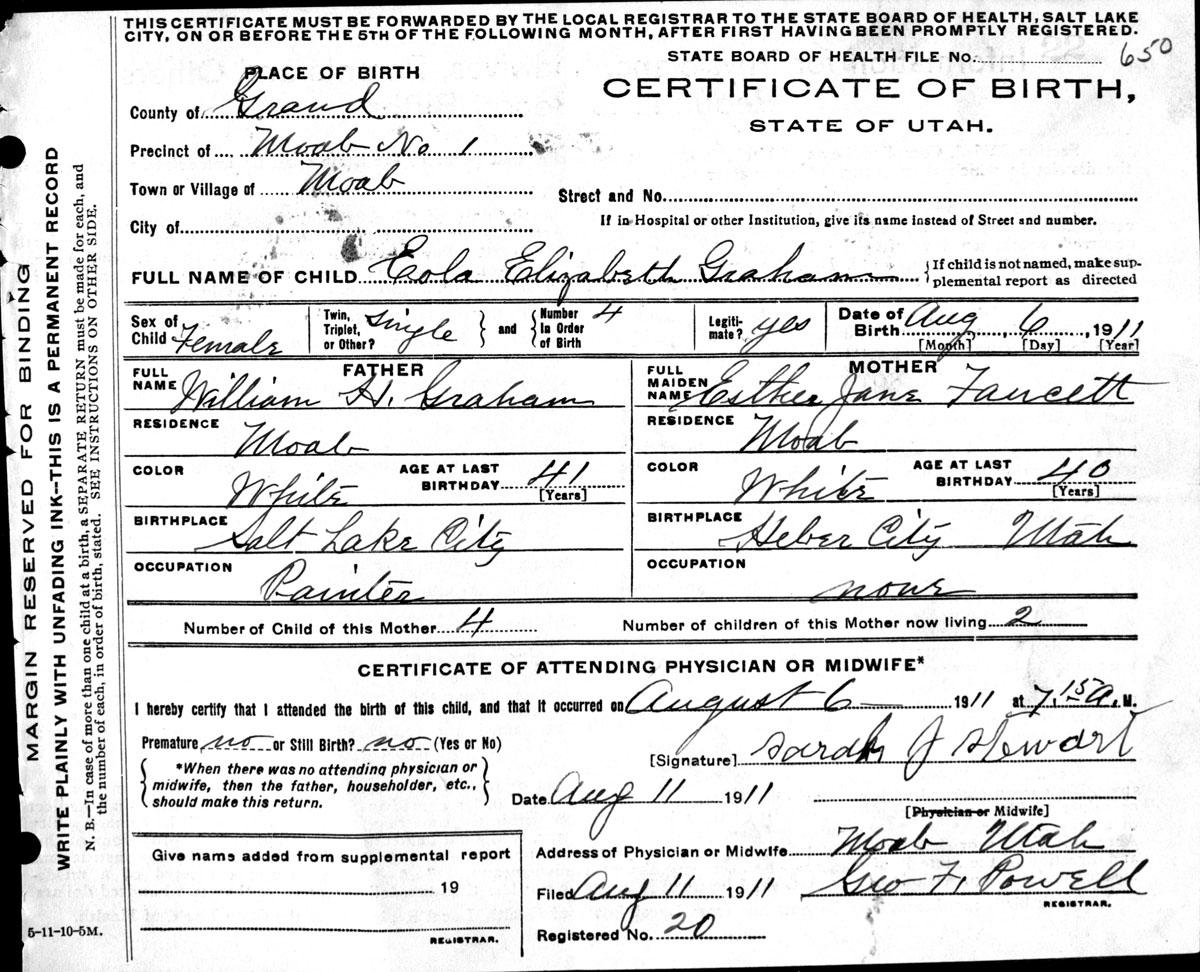 THIS CERTIFICATE MUST BE FORWARDED BY THE LOCAL REGISTRAR TO THE STATE BOARD OF HEALTH, SALT LAKE
CITY, ON OR BEFORE THE 5TH OF THE FOLLOWING MONTH, AFTER FIRST HAVING BEEN PROMPTLY REGISTERED.
STATE BOARD OF HEALTH FILE No. 650
PLACE OF BIRTH
CERTIFICATE OF BIRTH,
STATE OF UTAH.
County of Grand
Precinct of Moab No 1
Town or Village of Moab
Street and No.
If in Hospital or other Institution, give its name instead of Street and number.
City of
FULL NAME OF CHILD Eola Elizabeth Graham
If child is not named, make sup-
plemental report as directed
Sex of Child Female
Twin, Triplet, or Other? Single
and
Number in Order of Birth 4
Legiti-mate? yes
Date of Birth Aug 6, 1911
[Month] [Day] [Year]
FATHER
FULL NAME William H. Graham
RESIDENCE Moab
COLOR White
AGE AT LAST BIRTHDAY 41
[Years]
BIRTHPLACE Salt Lake City
OCCUPATION Painter
MOTHER
FULL MAIDEN NAME Esther Jane Fawcett
RESIDENCE Moab
COLOR White
AGE AT LAST BIRTHDAY 40
[Years]
BIRTHPLACE Heber City Utah
OCCUPATION none
Number of Child of this Mother 4 Number of children of this Mother now living 2
CERTIFICATE OF ATTENDING PHYSICIAN OR MIDWIFE*
I hereby certify that I attended the birth of this child, and that it occurred on August 6 1911 at 7.15 a. M.
Premature no or Still Birth? no (Yes or No)
*When there was no attending physician or
midwife, then the father, householder, etc.,
should make this return.
[Signature] Sarah J Stewart
Date Aug 11 1911
[Physician or Midwife]
Give name added from supplemental report
19
REGISTRAR.
Address of Physician or Midwife Moab Utah
Filed Aug 11 1911 Geo F. Powell
REGISTRAR.
Registered No. 20
5-11-10-5M.
MARGIN RESERVED FOR BINDING
WRITE PLAINLY WITH UNFADING INK--THIS IS A PERMANENT RECORD
N. B.—In case of more than one child at a birth, a SEPARATE RETURN must be made for each, and
the number of each, in order of birth, stated. SEE INSTRUCTIONS ON OTHER SIDE.